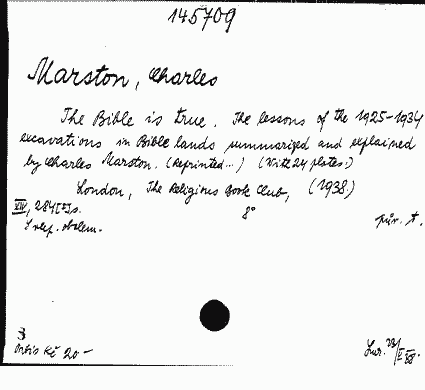 145709
Marston, Charles
The Bible is true. The lessons of the 1925-1934
excavations in Bible lands summarized and explained
by Charles Marston. (Reprinted...) (With 24 plates.)
London, The Religious Book Club, (1938.)
XIV, 284 s. 8° pův. t.
S vep. obalem.
Orbis Kč 20-